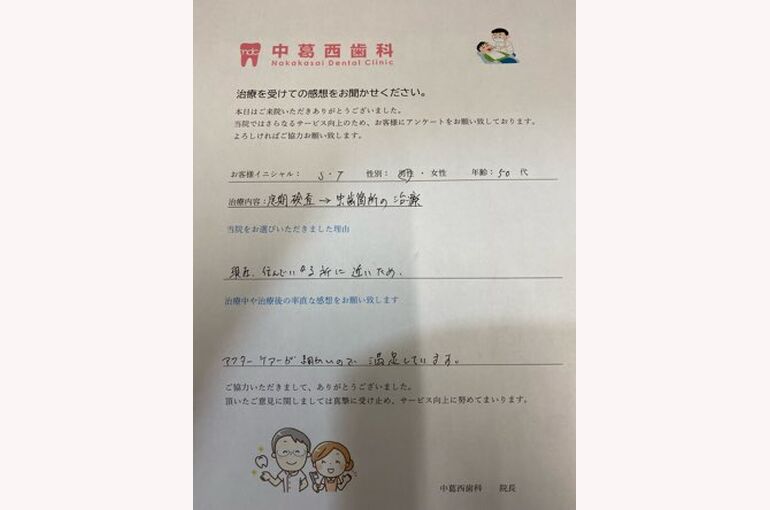 中葛西歯科
Nakakasai Dental Clinic
治療を受けての感想をお聞かせください。
本日はご来院いただきありがとうございました。
当院ではさらなるサービス向上のため、お客様にアンケートをお願い致しております。
よろしければご協力お願い致します。
お客様イニシャル： S・T 性別： 男性 ・ 女性 年齢：50 代
治療内容：定期検査→虫歯箇所の治療
当院をお選びいただきました理由
現在、住んでいる所に近いため。
治療中や治療後の率直な感想をお願い致します
アフターケアーが細かいので 満足しています。
ご協力いただきまして、ありがとうございました。
頂いたご意見に関しましては真摯に受け止め、サービス向上に努めてまいります。
中葛西歯科 院長